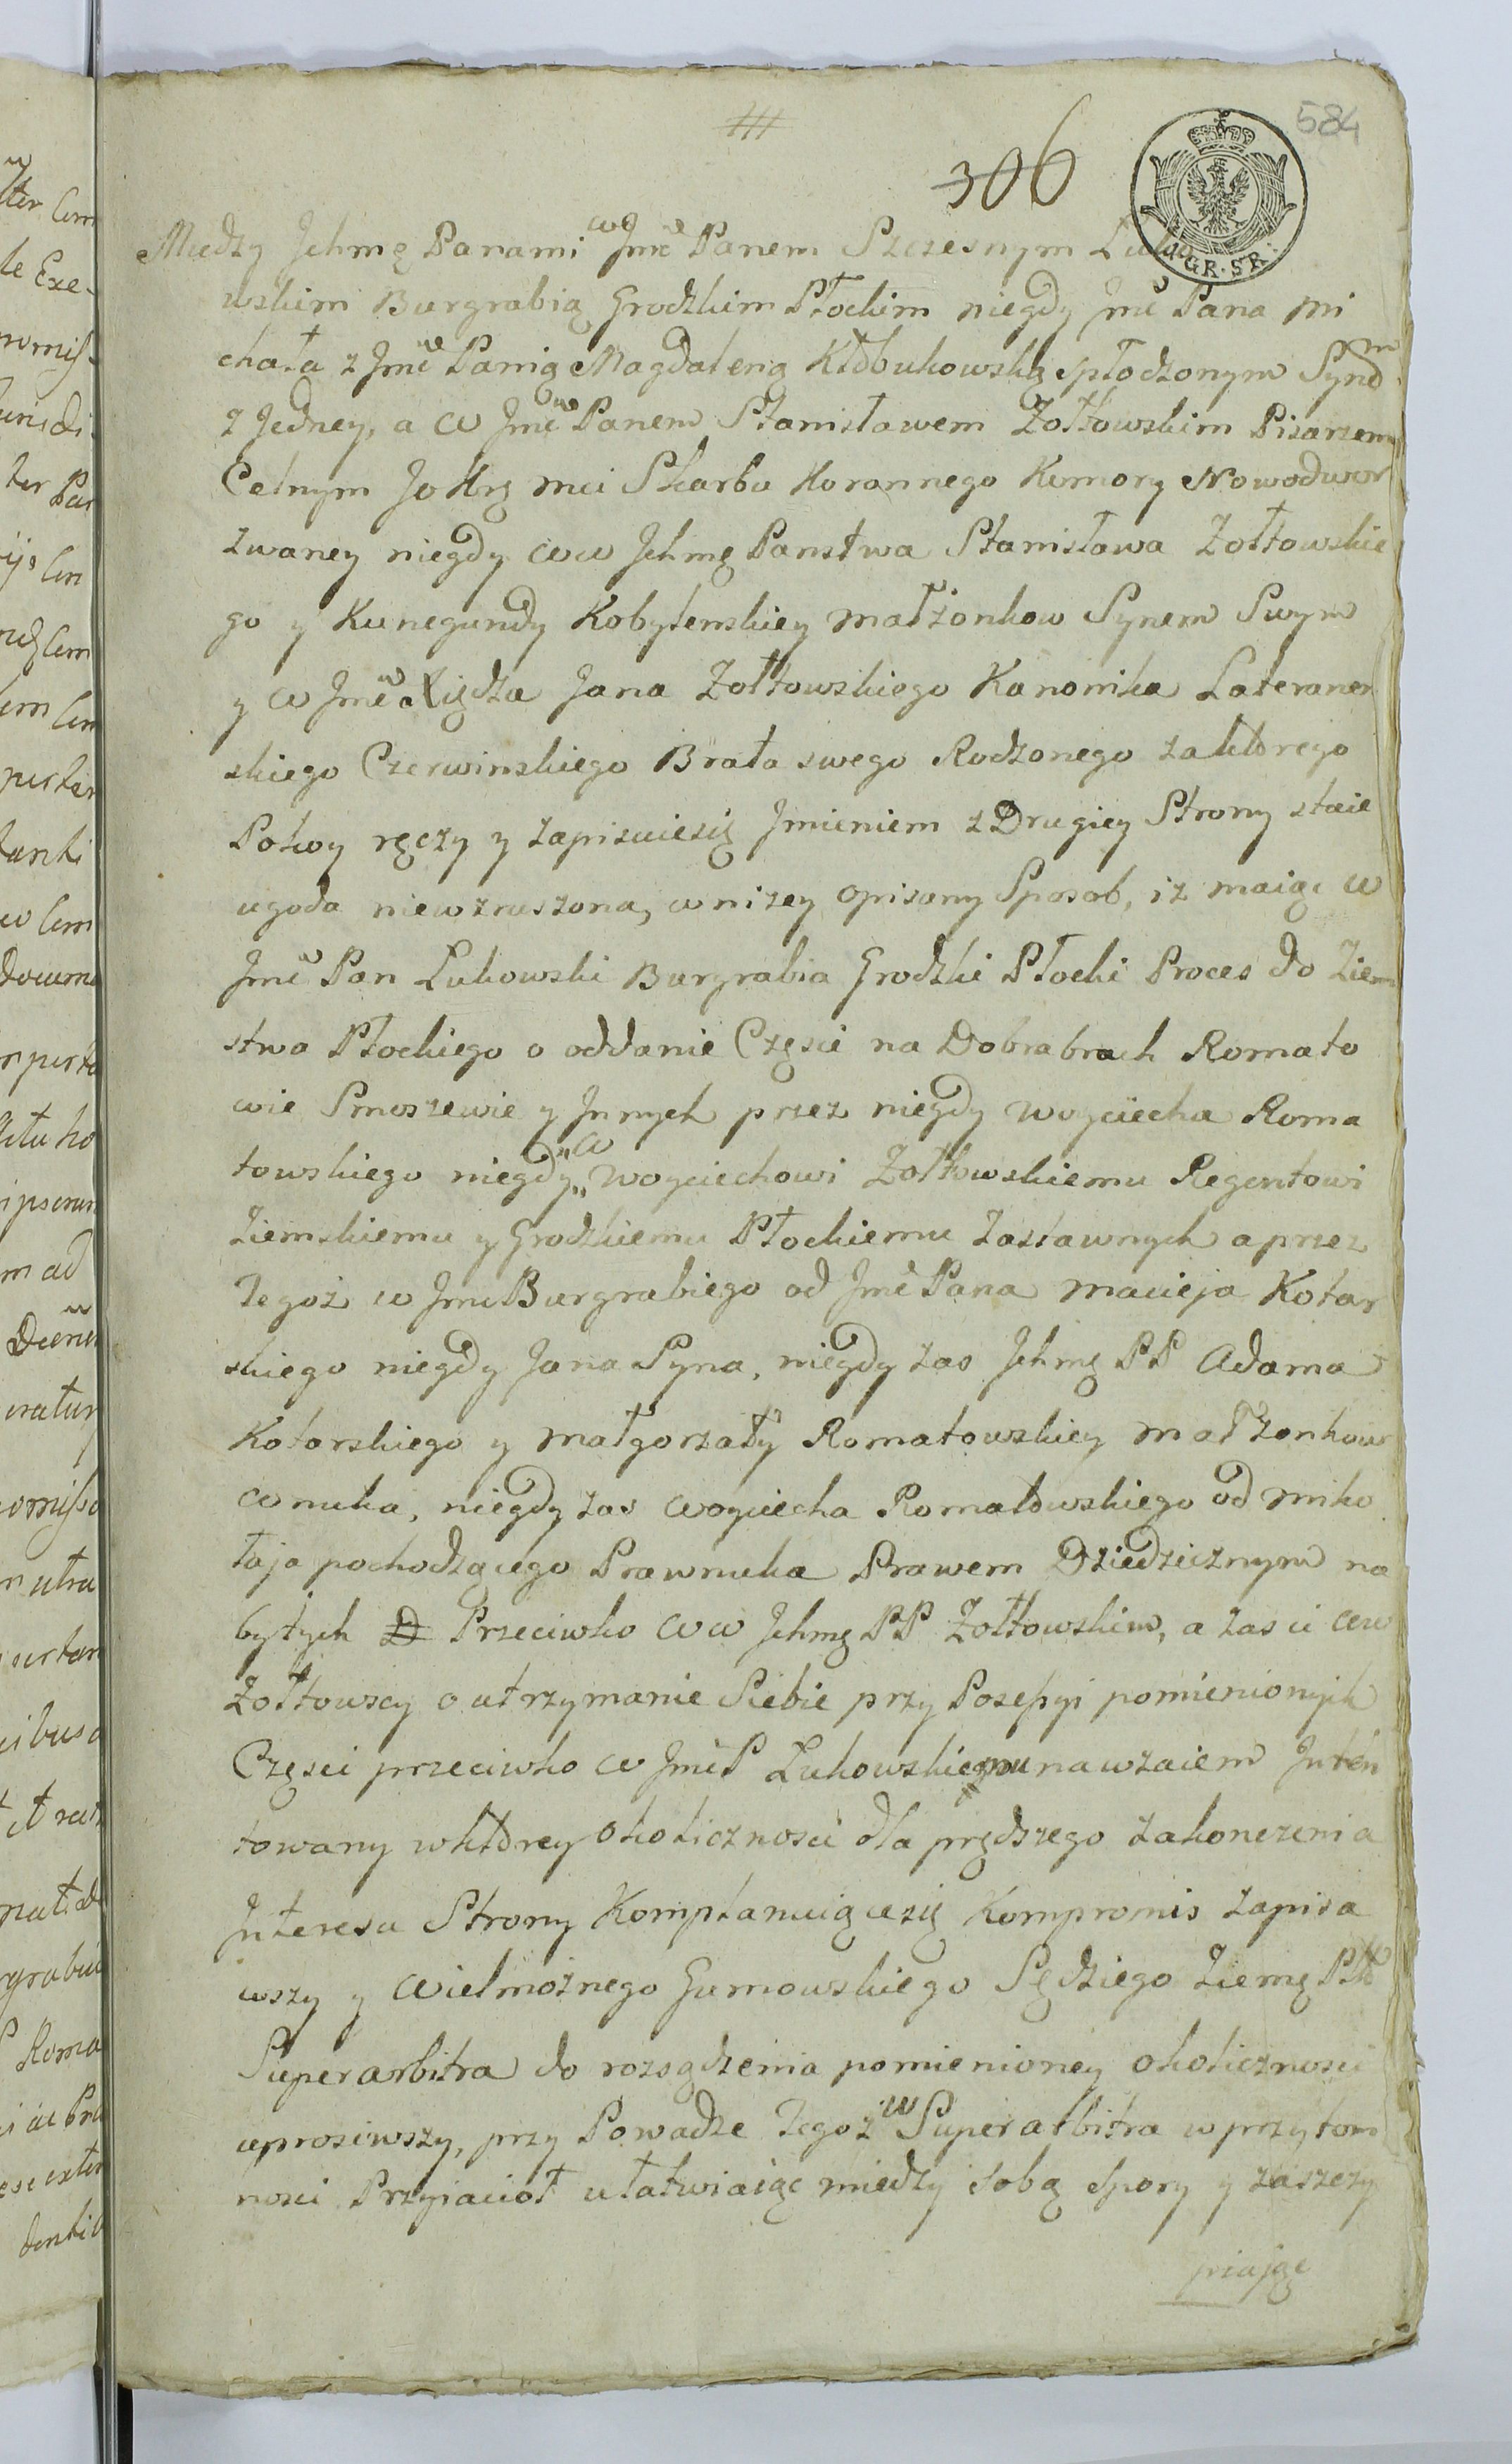 584
306
GR. SR.
Miedzy Jchmę Panami w Jmć Panem Szczesnym Luko
wskim Burgrabią Grodzkim Płockim niegdy Jmć Pana Mi
chała z Jmć Panią Magdaleną Kłobukowską spłodzonym Synem
z Jedney, a W Jmć Panem Stanisławem Zołtowskim Pisarzem
Celnym Jo Krę Mci Skarbu Koronnego Komory Nowodwor
zwaney niegdy WW Jchmę Panstwa Stanisława Zołtowskie
go y Kunegundy Kobylenskiey Małżonkow Synem Swym
y W Jmć Xiędza Jana Zołtowskiego Kanonika Lateranen
skiego Czerwinskiego Brata swego Rodzonego za ktorego
Pokoy ręczy y zapisuiesię Jmieniem z Drugiey Strony staie
ugoda niewzruszona, w nizey opisany Sposob, iz maiąc W
Jmć Pan Łukowski Burgrabia Grodzki Płocki Proces do Ziem
stwa Płockiego o oddanie Częsci na Dobrabrach Romato
wie Smoszewie y Jnnych przez niegdy Woyciecha Roma
towskiego niegdy W Woyciechowi Zołtowskiemu Regentowi
Ziemskiemu y Grodzkiemu Płockiemu Zastawnych a przez
Tegoż W Jmć Burgrabiego od Jmć Pana Macieja Kotar
skiego niegdy Jana Syna, niegdy zas Jchmę PP Adama
Kotarskiego y Małgorzaty Romatowskiey Małżonkow
Wnuka, niegdy zas Woyciecha Romatowskiego od Miko
łaja pochodzącego Prawnuka Prawem Dziedzicznym na
bytych Przeciwko WW Jchmę PP Zołtowskim, a zas ci WW
Zołtowscy o utrzymanie Siebie przy Possessyi pomienionych
Częsci przeciwko W Jmć P Łukowskiemu nawzaiem Jnten
towany w ktorey okolicznosci dla prędszego zakonczenia
Jnteresu Strony Komplanuiącesię Kompromis zapisa
wszy y Wielmożnego Gumowskiego Sędziego Ziemę Płł
Superarbitra do rozsądzenia pomienioney okolicznosci
uprosiwszy, przy Powadze Tegoż W Superarbitra w przytom
nosci Przyiacioł ułatwiaiąc miedzy sobą Spory y zaszczy
piające